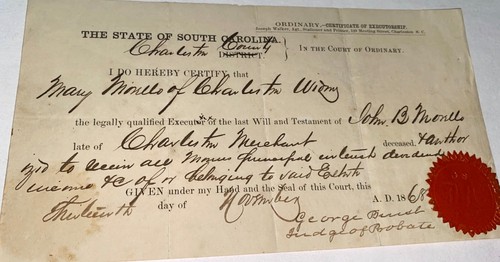 ORDINARY.—CERTIFICATE OF EXECUTORSHIP.
Joseph Walker, Agt., Stationer and Printer, 120 Meeting Street, Charleston, S. C.
THE STATE OF SOUTH CAROLINA.
Charleston County
DISTRICT.
IN THE COURT OF ORDINARY.
I DO HEREBY CERTIFY that
Mary Monello of Charleston Widow
the legally qualified Executor of the last Will and Testament of John B Monello
late of Charleston Merchant deceased, & author
izd to receive all Monies principal interest dividends
income &c of or belonging to said Estate
GIVEN under my Hand and the Seal of this Court, this
Thirteenth day of November A. D. 1868
George Buist
Judge of Probate